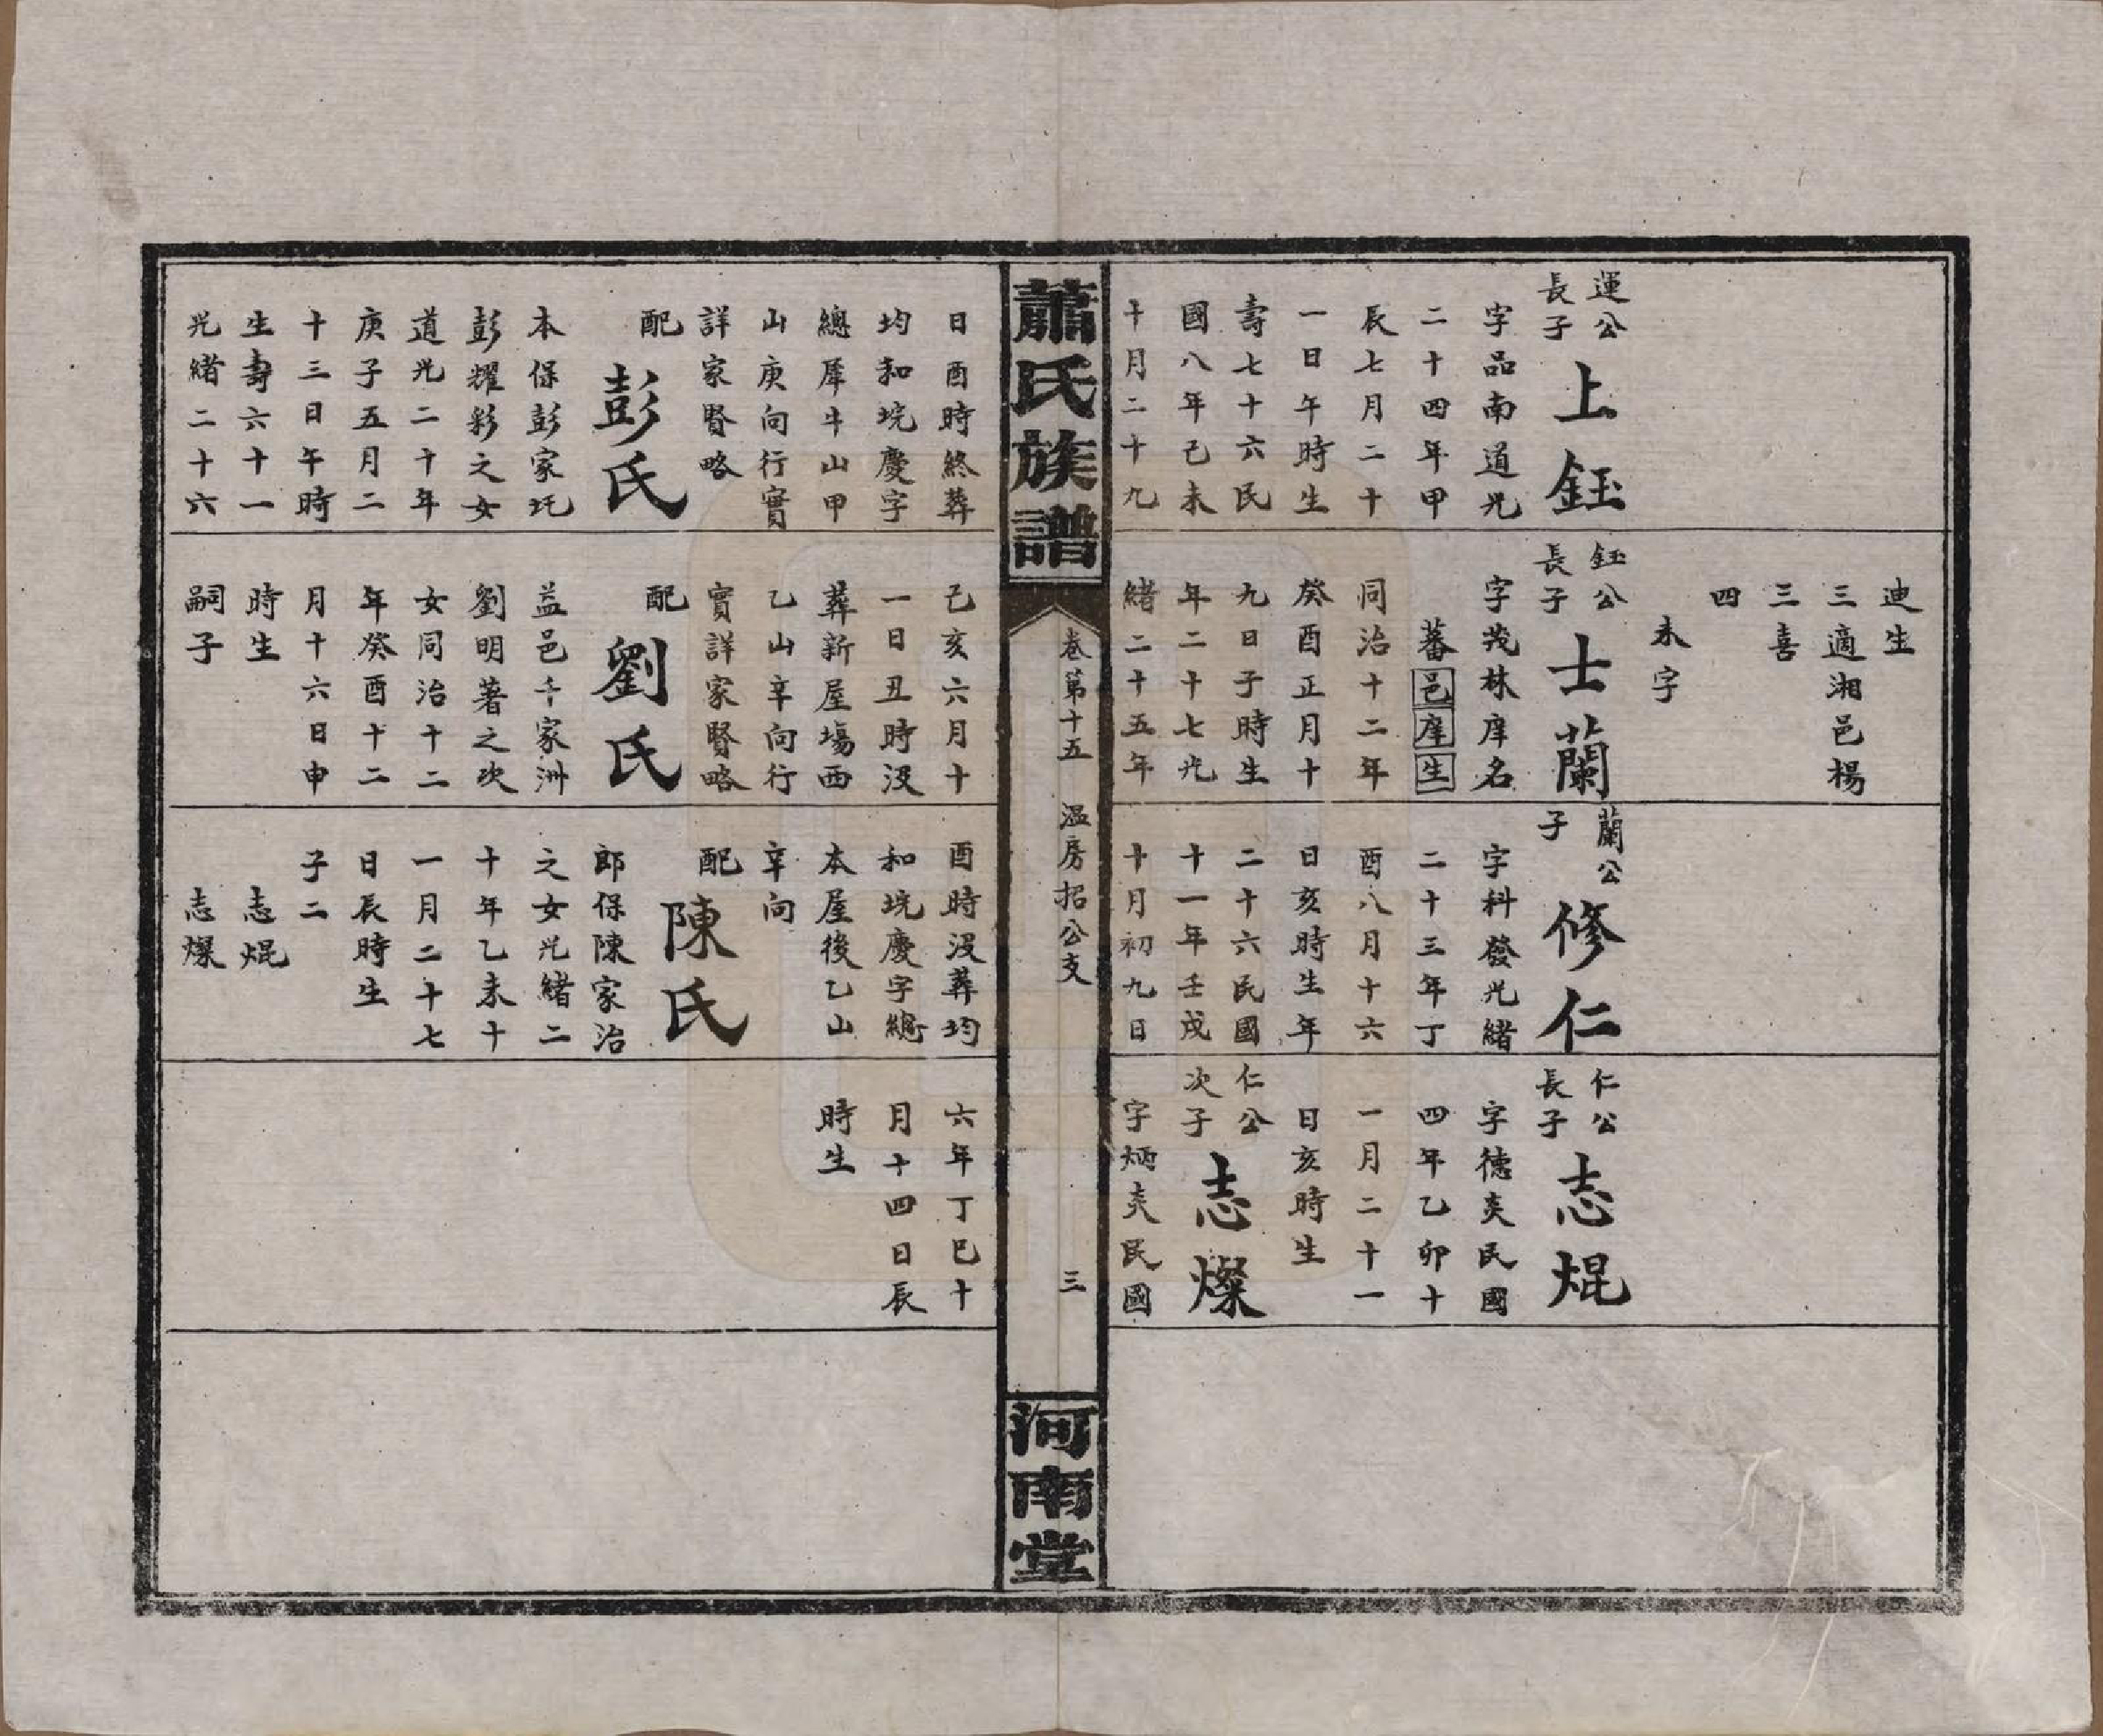 運公
長子
上鈺
字品南道光
二十四年甲
辰七月二十
一日午時生
壽七十六民
國八年己未
十月二十九
迪生
三適湘邑楊
三喜
四
未字
鈺公
長子
士蘭
字茂林庠名
蕃邑庠生
同治十二年
癸酉正月十
九日子時生
年二十七光
緒二十五年
蘭公
子
修仁
字科發光緒
二十三年丁
酉八月十六
日亥時生年
二十六民國
十一年壬戌
十月初九日
仁公
長子
志焜
字德炎民國
四年乙卯十
一月二十一
日亥時生
仁公
次子
志燦
字炳炎民國
蕭氏族譜
卷第十五 溫房招公支 三
河南堂
日酉時終葬
均和垸慶字
總犀牛山甲
山庚向行實
詳家賢略
配
彭氏
本保彭家圫
彭耀彩之女
道光二十年
庚子五月二
十三日午時
生壽六十一
光緒二十六
己亥六月十
一日丑時沒
葬新屋場西
乙山辛向行
實詳家賢略
配
劉氏
益邑千家洲
劉明著之次
女同治十二
年癸酉十二
月十六日申
時生
嗣子
酉時沒葬均
和垸慶字總
本屋後乙山
辛向
配
陳氏
郎保陳家治
之女光緒二
十年乙未十
一月二十七
日辰時生
子二
志焜
志燦
六年丁巳十
月十四日辰
時生